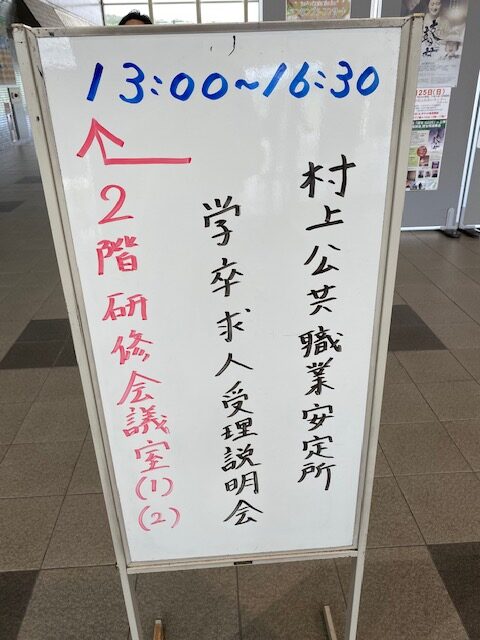 13:00~16:30
村上公共職業安定所
学卒求人受理説明会
2階研修会議室(1)(2)
25日(日)